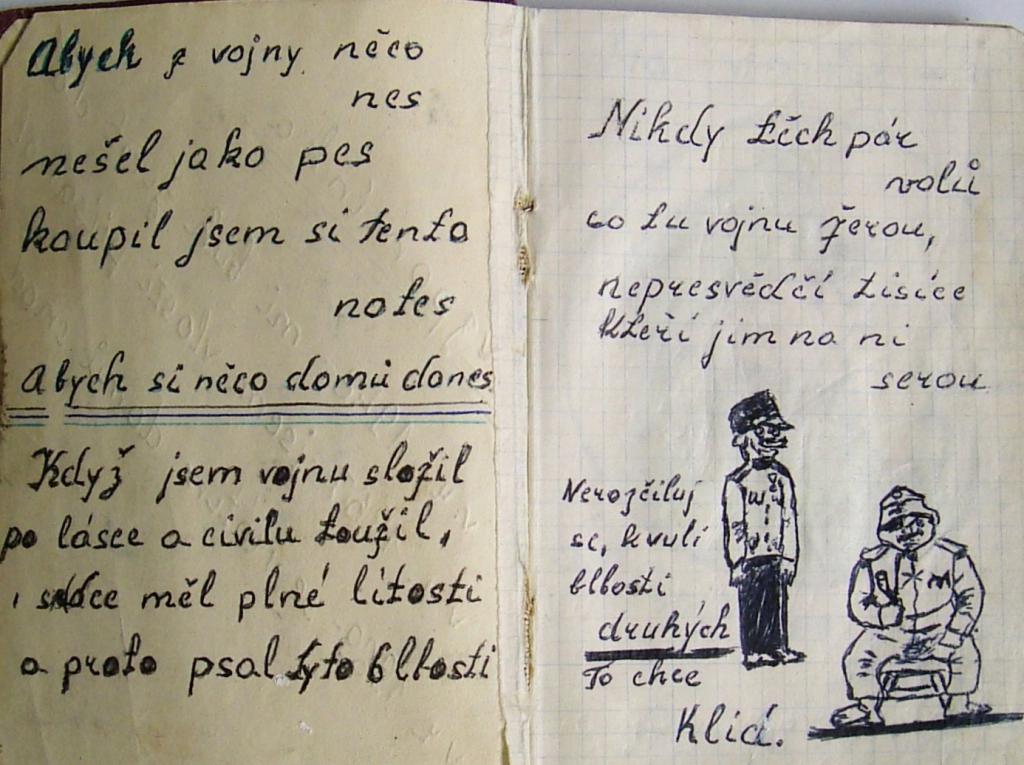 Abych z vojny něco
nes
nešel jako pes
koupil jsem si tento
notes
Abych si něco domů dones
Když jsem vojnu sloužil
po lásce a civilu toužil,
srdce měl plné lítosti
a proto psal tyto blbosti
Nikdy těch pár
volů
co tu vojnu žerou,
nepresvědčí tisíce
kteří jim na ni
serou
Nerozčiluj
se, kvuli
blbosti
druhých
To chce
Klid.